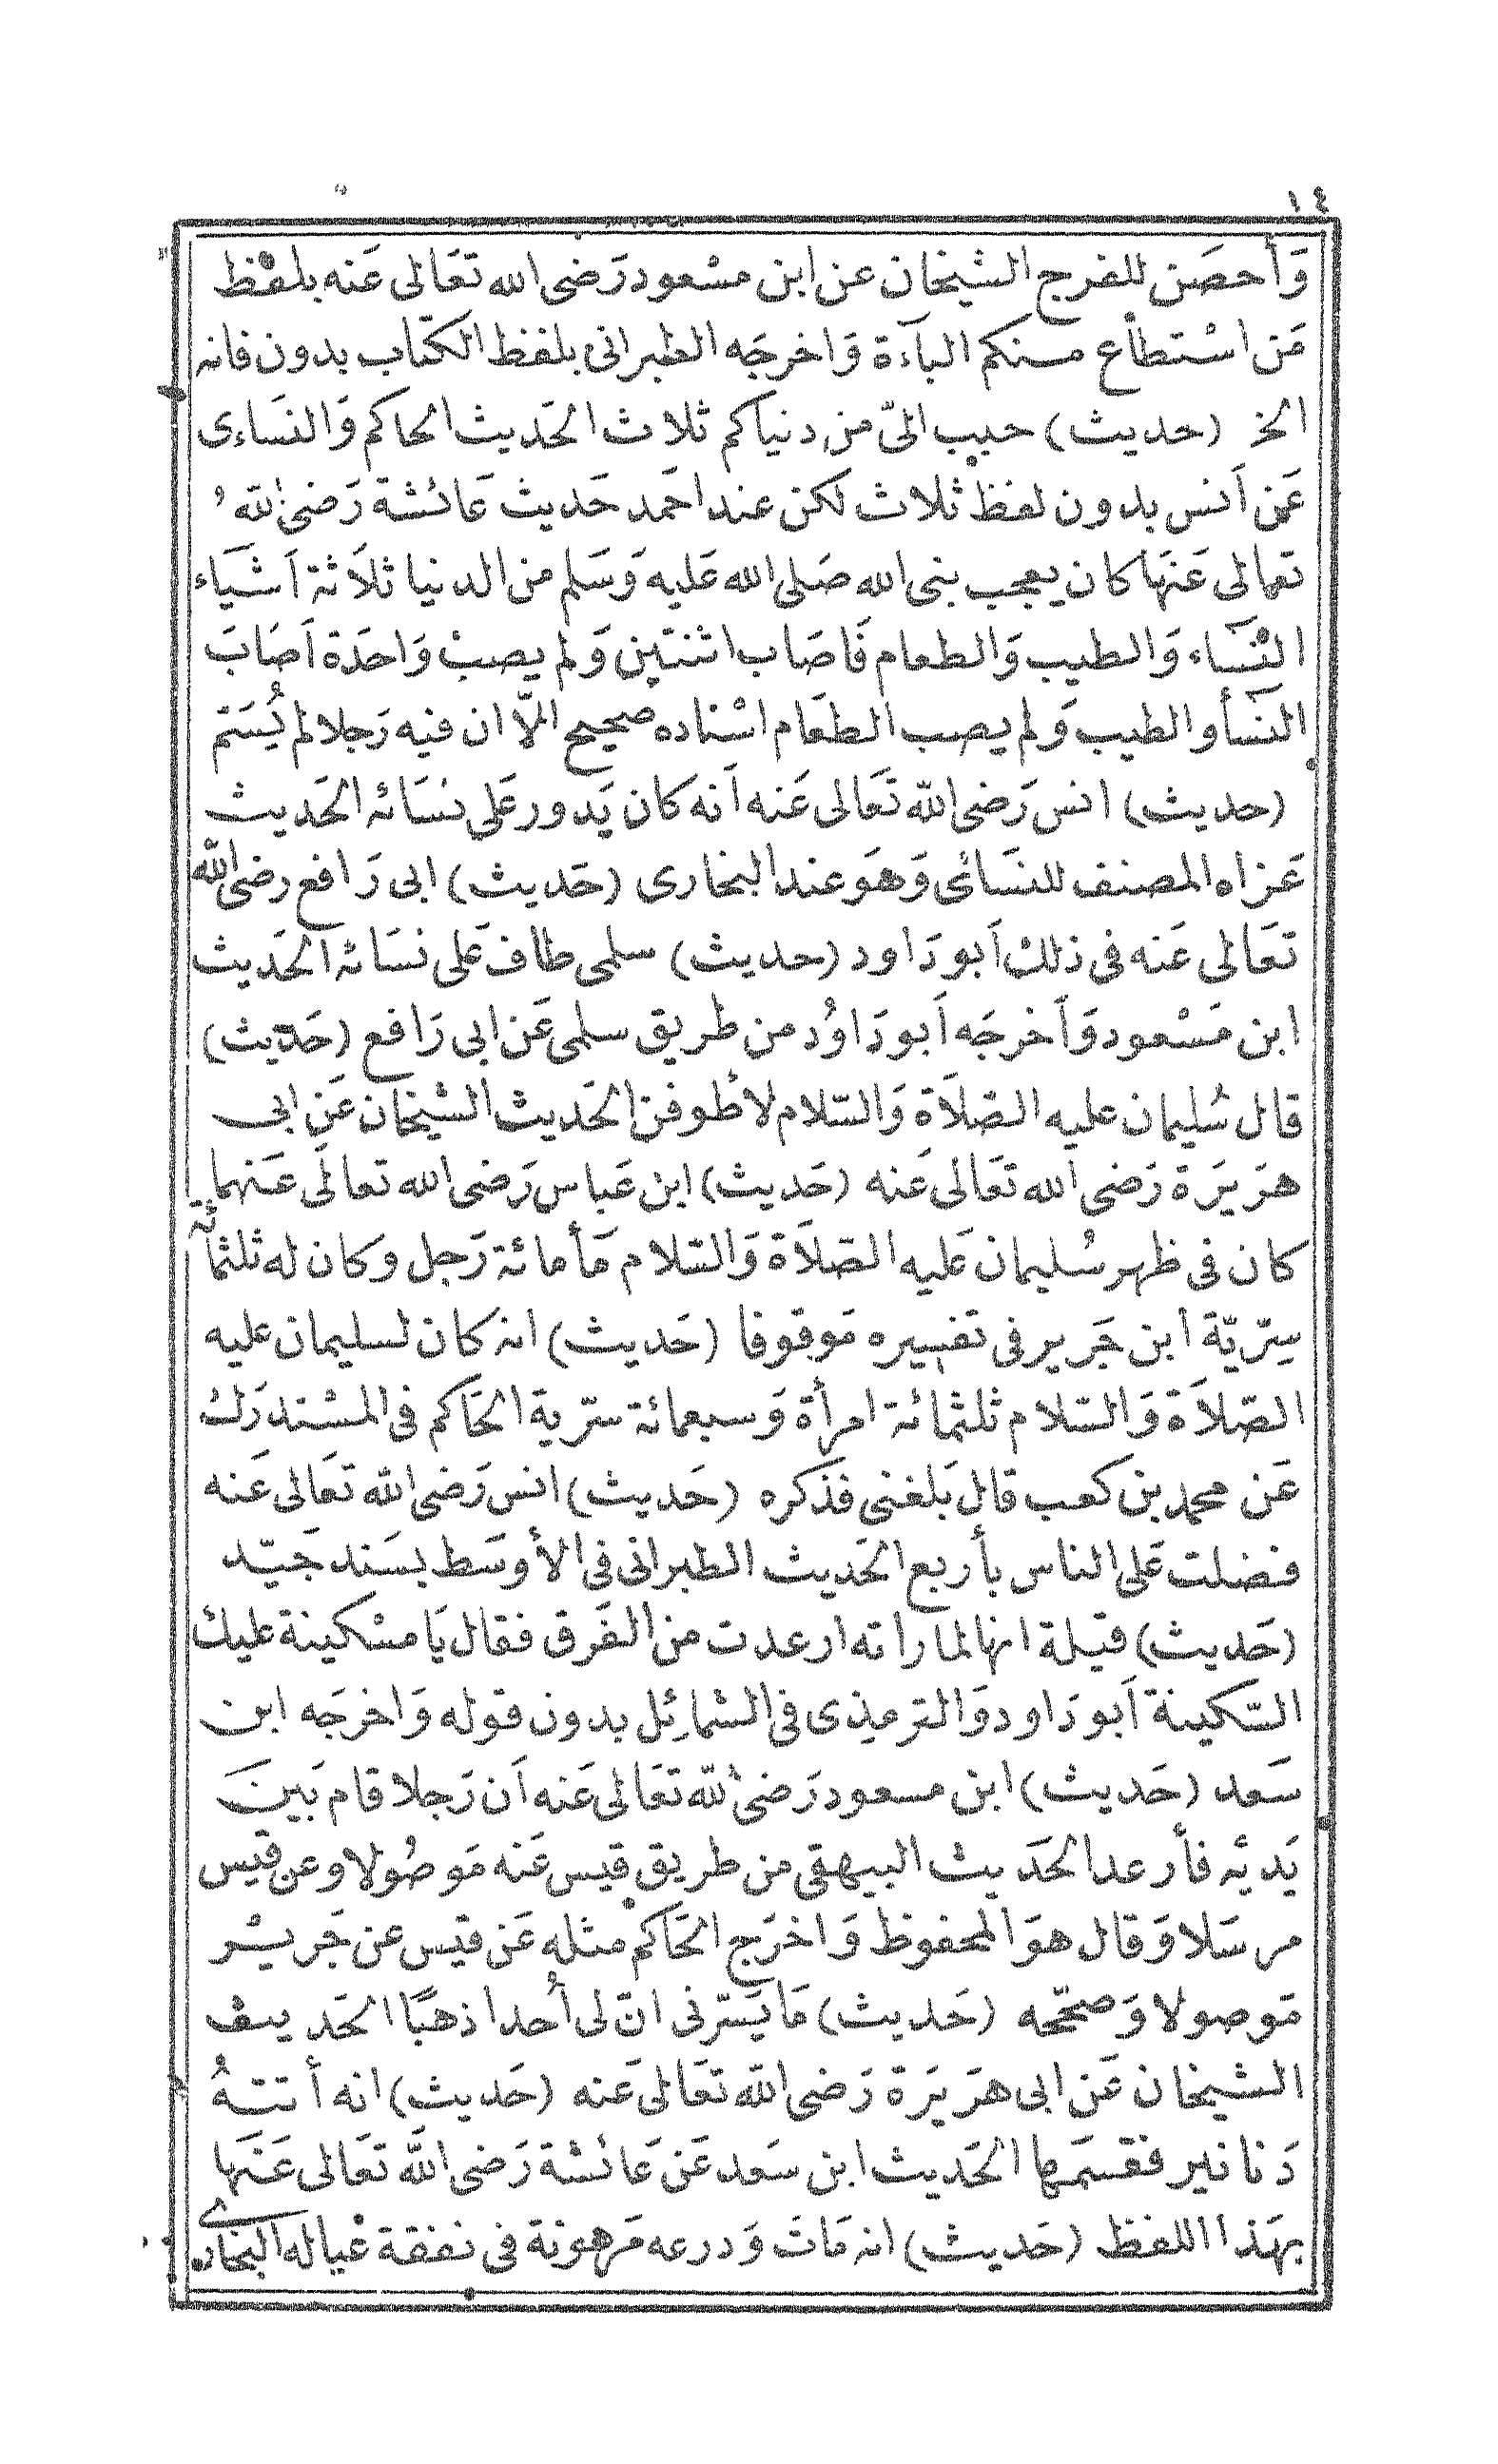 ١٤
وَأحصَن للفرج الشيخان عن ابن مسْعود رَضى الله تعَالى عَنه بلفظ
مَن اسْتطاع منكم الباَءة وَاخرجَه الطبرانى بلفظ الكتاب بدون فانه
الخ (حديث) حبب الىّ من دنياكم ثلاث الحَديث الحاكم وَالنسَاءى
عَن اَنس بدون لفظ ثلاث لكن عند احمَد حَديث عَائشة رَضى الله
تعالى عَنهَا كان يعجب بنى الله صَلى الله عَليه وَسَلم من الدنيا ثلاَثة اَشيَاء
النسَاء وَالطيب وَالطعام فَاصَاب اثنتَين وَلم يصبْ وَاحدَة اَصَابَ
النسَأ والطيب وَلم يصب الطعَام اسْناده صَحيح الاّ ان فيه رَجلا لم يُسَتم
(حديث) انس رَضى الله تَعَالى عَنه اَنه كان يَدور عَلى نسَائه الحَديث
عَزاه المصنف للنسَائى وَهوَ عند البخارى (حَديث) ابى رَافع رضى الله
تعَالى عَنه فى ذلك اَبو دَاود (حديث) سلمى طاف عَلى نسَائه الحَديث
ابن مَسْعود وَاَخرجَه اَبو دَاوُد من طريق سلمى عَن ابى رَافع (حَديث)
قال سُليمان عليه الصّلاَة وَالسّلام لأطوفن الحَديث الشيخان عَن ابى
هرَيرَة رَضى الله تعَالى عَنه (حَديث) ابن عَباس رَضى الله تعالَى عَنهما
كان فى ظهر سُليمان عَليه الصّلاَة وَالسّلام مَأ مائة رَجل وكان له ثلثمائة
سِرّيّة ابن جَرير فى تفسيره مَوقوفا (حَديث) انه كان لسليمان عليه
الصّلاَة وَالسّلام ثلثمائة امرأة وَسبعمائة سرّية الحَاكم فى المسْتدرَك
عَن محمد بن كعب قال بَلغنى فذكره (حَديث) انس رَضى الله تعَالى عَنه
فضلت عَلى الناس بأربع الحَديث الطبرانى فى الأوسَط بسَند جَيّد
(حَديث) قيلة انها لما راته ارعدت من الفَرق فقال يَا مسْكينة عليك
السّكينة اَبو دَاود وَالترمذى فى الشمائِل بدون قوله وَاخرجَه ابن
سَعد (حَديث) ابن مسعود رَضى الله تعَالى عَنه اَن رَجلا قام بَينَ
يَديْه فأرعد الحَديث البيهقى من طريق قيس عَنه مَوصُولا وعن قيس
مرسَلا وَقال هوَ المحفوظ وَاخرَج الحَاكم مثله عَن قيس عن جَريْر
مَوصولا وَصحّحه (حَديث) مَا يَسرّنى انّ لى أُحدا ذهبًا الحَديث
الشيخان عَن ابى هرَيرَة رَضى الله تعَالى عَنه (حَديث) انه أتتهُ
دَنانير فقسَمها الحَديث ابن سَعد عَن عَائشة رَضى الله تعَالى عَنهَا
بهَذا اللفظ (حَديث) انه مَات وَدرعه مَرهونة فى نفقة عْياله البخارى